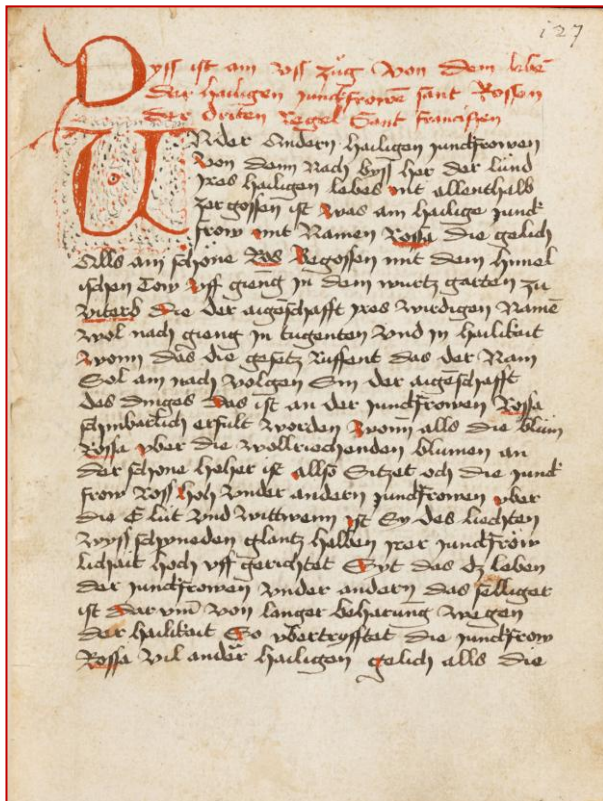 127
Dyss ist ain vss zug von dem lebē
der hailigen junckfrowē sant Rossen
der driten regel Sant francissen
UNder andern hailigen junckfrowen
von denn Nach byss her der lünd
jres hailigen lebēs mit allenthalb
zergossen ist was ain hailige junck
frow mit Namen Rossa die gelich
Alls ain schöne Ros Begossen mit dem himel
ischen Tow vff gieng in dem wurtz garten zu
viterb die der aigēschafft jres wirdigen Namē
wol nach gieng in tugenten vnd in hailikait
wonn das die gesetz Ruffent das der Nam
Sol ain nach volgen Sin der aigēschafft
des dinges das ist an der junckfrowen Rossa
schinbarlich erfult worden wonn alls die blům
Rossa vber die wollriechenden blumen an
der schone hoher ist allso Sitzet och die junck
frow Ross hoch vnder andern junckfrowen vber
die E lüt vnd wittwenn ist Sy des liechten
wyss schyneden glantz halben jrer junckfrow
lichait hoch vff gerichtet Syt das dz leben
der junckfrowen vnder andern das selliger
ist dar vm̄ von langer beharung wegen
der hailikait So vbertryfftet die junckfrow
Rossa vil ander hailigen gelich alls die